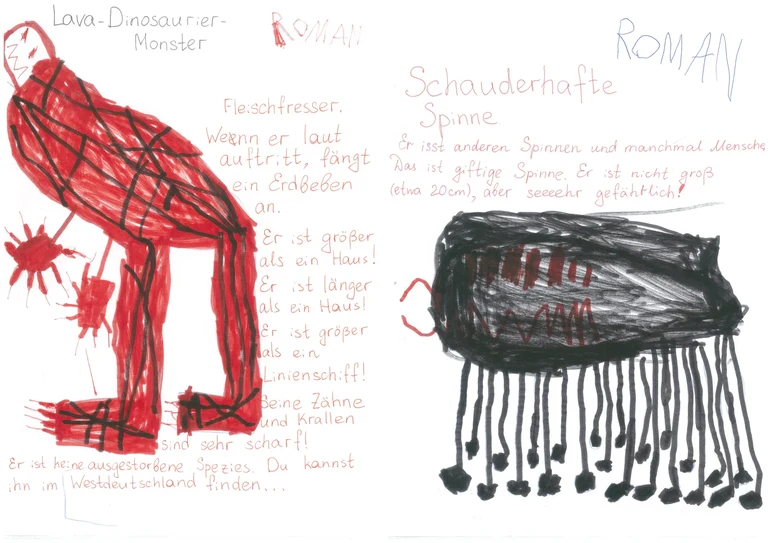 Lava-Dinosaurier-
Monster
ROMAN
Fleischfresser.
Weenn er laut
auftritt, fängt
ein Erdbeben
an.
Er ist größer
als ein Haus!
Er ist länger
als ein Haus!
Er ist größer
als ein
Linienschiff!
Seine Zähne
und Krallen
sind sehr scharf!
Er ist keine ausgestorbene Spezies. Du kannst
ihn im Westdeutschland finden...
ROMAN
Schauderhafte
Spinne
Er isst anderen Spinnen und manchmal Mensche
Das ist giftige Spinne. Er ist nicht groß
(etwa 20cm), aber seeeehr gefährtlich!